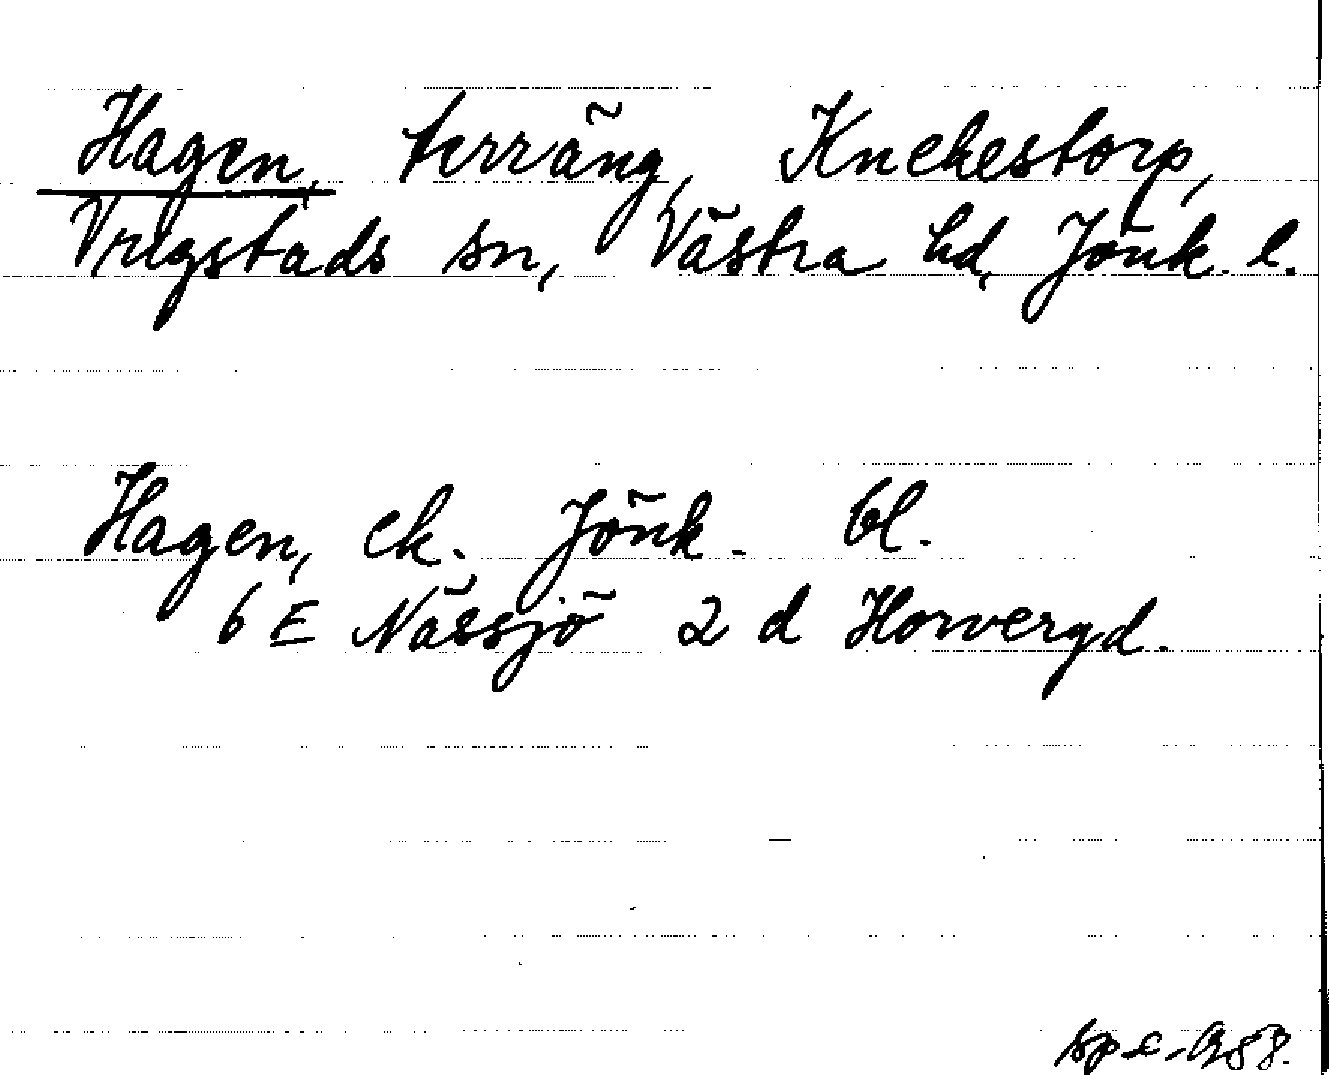 Hagen, terräng, Knekestorp,
Vrigstads sn, Västra hd, Jönk. l.
Hagen, ek. Jönk. bl.
6 E Nässjö 2 d Horveryd.